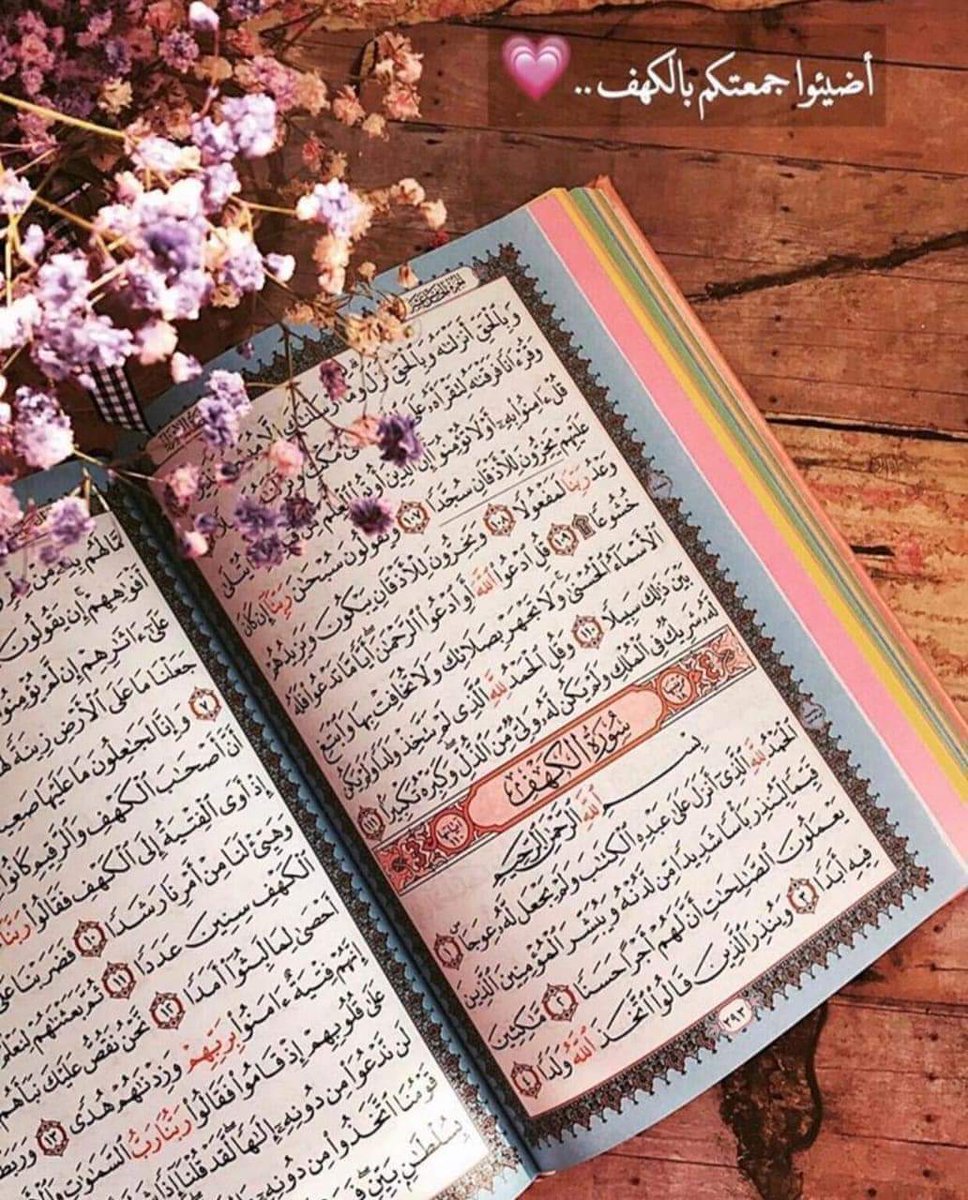 أضيئوا جمعتكم بالكهف ..
وَبِالْحَقِّ أَنزَلْنَٰهُ وَبِالْحَقِّ نَزَلَ وَمَا أَرْسَلْنَٰكَ إِلَّا
وَقُرْءَانًا فَرَقْنَٰهُ لِتَقْرَأَهُ عَلَى مُكْثٍ
قُلْ ءَامِنُوا بِهِۦٓ أَوْ لَا تُؤْمِنُوٓا إِنَّ الَّذِينَ أُوتُوا الْعِلْمَ مِن يُتْلَىٰ
عَلَيْهِمْ يَخِرُّونَ لِلْأَذْقَانِ سُجَّدًا ١٠٧ وَيَقُولُونَ سُبْحَٰنَ رَبِّنَآ إِن كَانَ
وَعْدُ رَبِّنَا لَمَفْعُولًا ١٠٨ وَيَخِرُّونَ لِلْأَذْقَانِ يَبْكُونَ وَيَزِيدُهُمْ
خُشُوعًا ۩ ١٠٩ قُلِ ادْعُوا اللَّهَ أَوِ ادْعُوا الرَّحْمَٰنَ أَيًّا مَّا تَدْعُوا فَلَهُ
الْأَسْمَآءُ الْحُسْنَىٰ وَلَا تَجْهَرْ بِصَلَاتِكَ وَلَا تُخَافِتْ بِهَا وَابْتَغِ
بَيْنَ ذَٰلِكَ سَبِيلًا ١١٠ وَقُلِ الْحَمْدُ لِلَّهِ الَّذِي لَمْ يَتَّخِذْ وَلَدًا وَلَمْ يَكُن
لَّهُۥ شَرِيكٌ فِي الْمُلْكِ وَلَمْ يَكُن لَّهُۥ وَلِيٌّ مِّنَ الذُّلِّ وَكَبِّرْهُ تَكْبِيرًا ١١١
سُورَةُ الْكَهْفِ
بِسْمِ اللَّهِ الرَّحْمَٰنِ الرَّحِيمِ
الْحَمْدُ لِلَّهِ الَّذِيٓ أَنزَلَ عَلَىٰ عَبْدِهِ الْكِتَٰبَ وَلَمْ يَجْعَل لَّهُۥ عِوَجَا ۜ ١
قَيِّمًا لِّيُنذِرَ بَأْسًا شَدِيدًا مِّن لَّدُنْهُ وَيُبَشِّرَ الْمُؤْمِنِينَ الَّذِينَ
يَعْمَلُونَ الصَّٰلِحَٰتِ أَنَّ لَهُمْ أَجْرًا حَسَنًا ٢ مَّٰكِثِينَ
فِيهِ أَبَدًا ٣ وَيُنذِرَ الَّذِينَ قَالُوا اتَّخَذَ اللَّهُ وَلَدًا ٤
٢٩٣
مَّا لَهُم بِهِۦ مِنْ
أَفْوَٰهِهِمْ إِن يَقُولُونَ
عَلَىٰٓ ءَاثَٰرِهِمْ إِن لَّمْ يُؤْمِنُوا
جَعَلْنَا مَا عَلَى الْأَرْضِ زِينَةً
٧ وَإِنَّا لَجَٰعِلُونَ مَا عَلَيْهَا صَعِيدًا
أَنَّ أَصْحَٰبَ الْكَهْفِ وَالرَّقِيمِ كَانُوا
إِذْ أَوَى الْفِتْيَةُ إِلَى الْكَهْفِ فَقَالُوا رَبَّنَآ
وَهَيِّئْ لَنَا مِنْ أَمْرِنَا رَشَدًا ١٠ فَضَرَبْنَا عَلَىٰٓ
الْكَهْفِ سِنِينَ عَدَدًا ١١ ثُمَّ بَعَثْنَٰهُمْ لِنَعْلَمَ
أَحْصَىٰ لِمَا لَبِثُوٓا أَمَدًا ١٢ نَّحْنُ نَقُصُّ عَلَيْكَ نَبَأَهُم
إِنَّهُمْ فِتْيَةٌ ءَامَنُوا بِرَبِّهِمْ وَزِدْنَٰهُمْ هُدًى ١٣ وَرَبَطْنَا
عَلَىٰ قُلُوبِهِمْ إِذْ قَامُوا فَقَالُوا رَبُّنَا رَبُّ السَّمَٰوَٰتِ
لَن نَّدْعُوَا مِن دُونِهِۦٓ إِلَٰهًا لَّقَدْ قُلْنَآ إِذًا
قَوْمُنَا اتَّخَذُوا مِن دُونِهِۦٓ
بِسُلْطَٰنٍ بَيِّنٍ